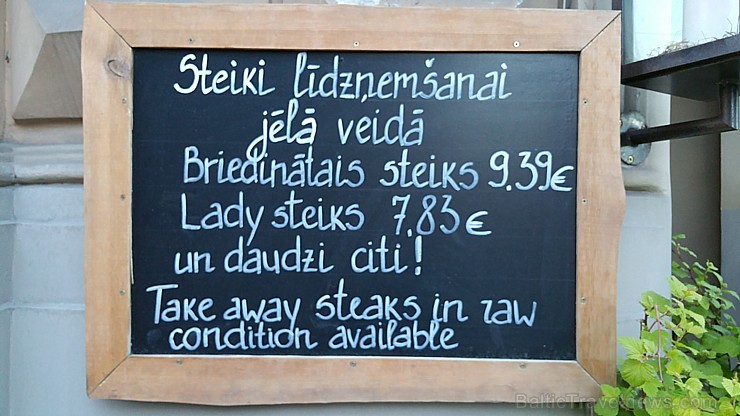 Steiki līdzņemšanai
jēlā veidā
Briedinātais steiks 9.39€
Lady steiks 7.83€
un daudzi citi!
Take away steaks in raw
condition available
BalticTravelnews.com